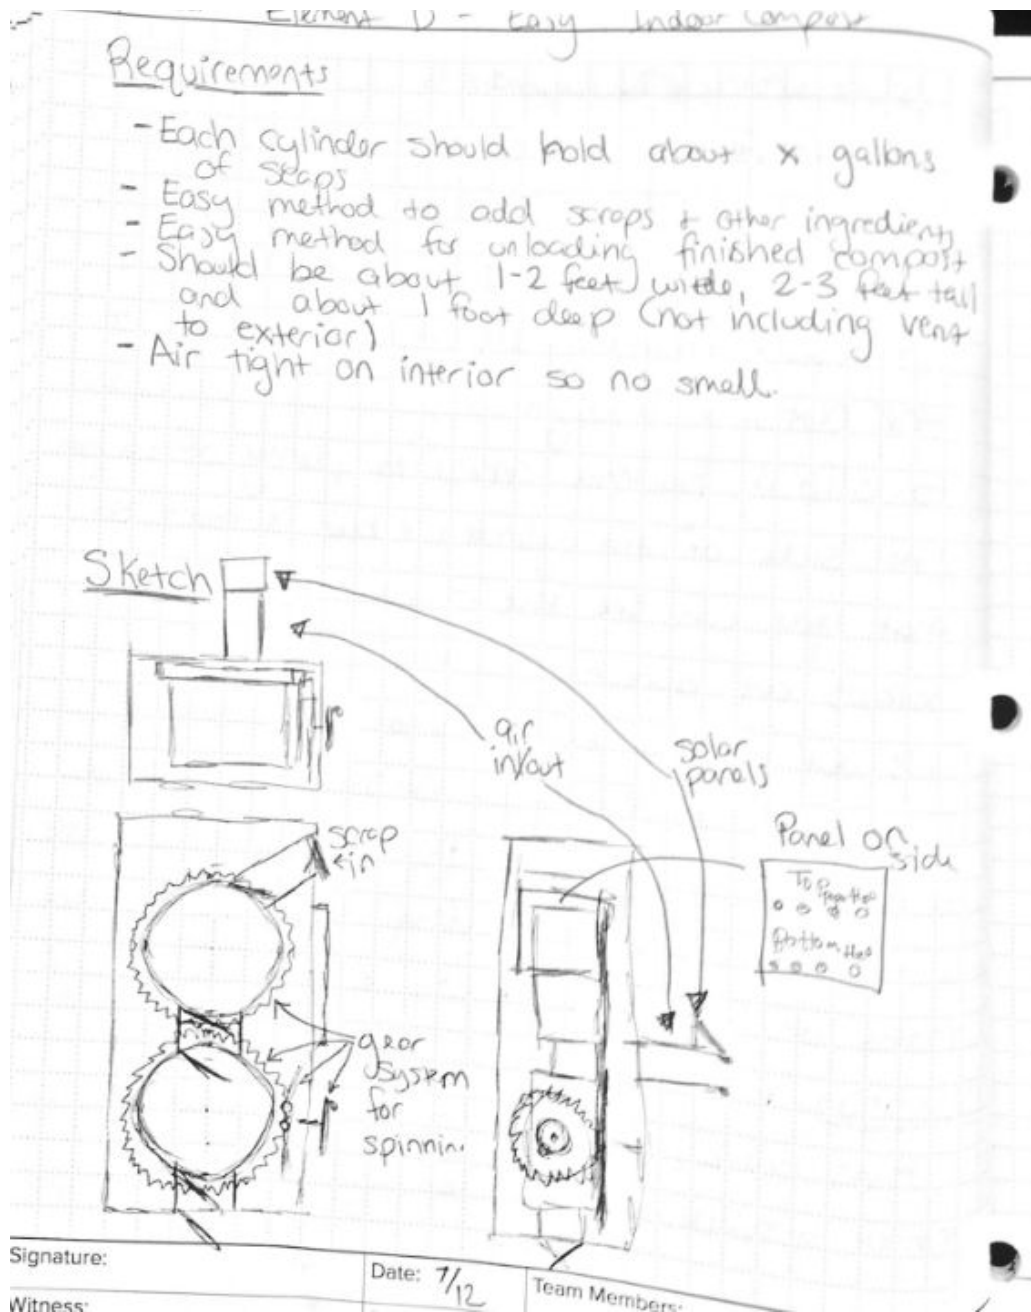 Element D - Easy Indoor Compost
Requirements
- Each cylinder should hold about x gallons
of scaps
- Easy method to add scraps + other ingredients
- Easy method for unloading finished compost
- Should be about 1-2 feet) wide, 2-3 feet tall
and about 1 foot deep (not including vent
to exterior)
- Air tight on interior so no smell.
Sketch
air
in/out
solar
panels
scrap
in
Panel on
side
Top
Bottom
gear
system
for
spinnin
Signature:
Date: 7/12
Team Members:
Witness: